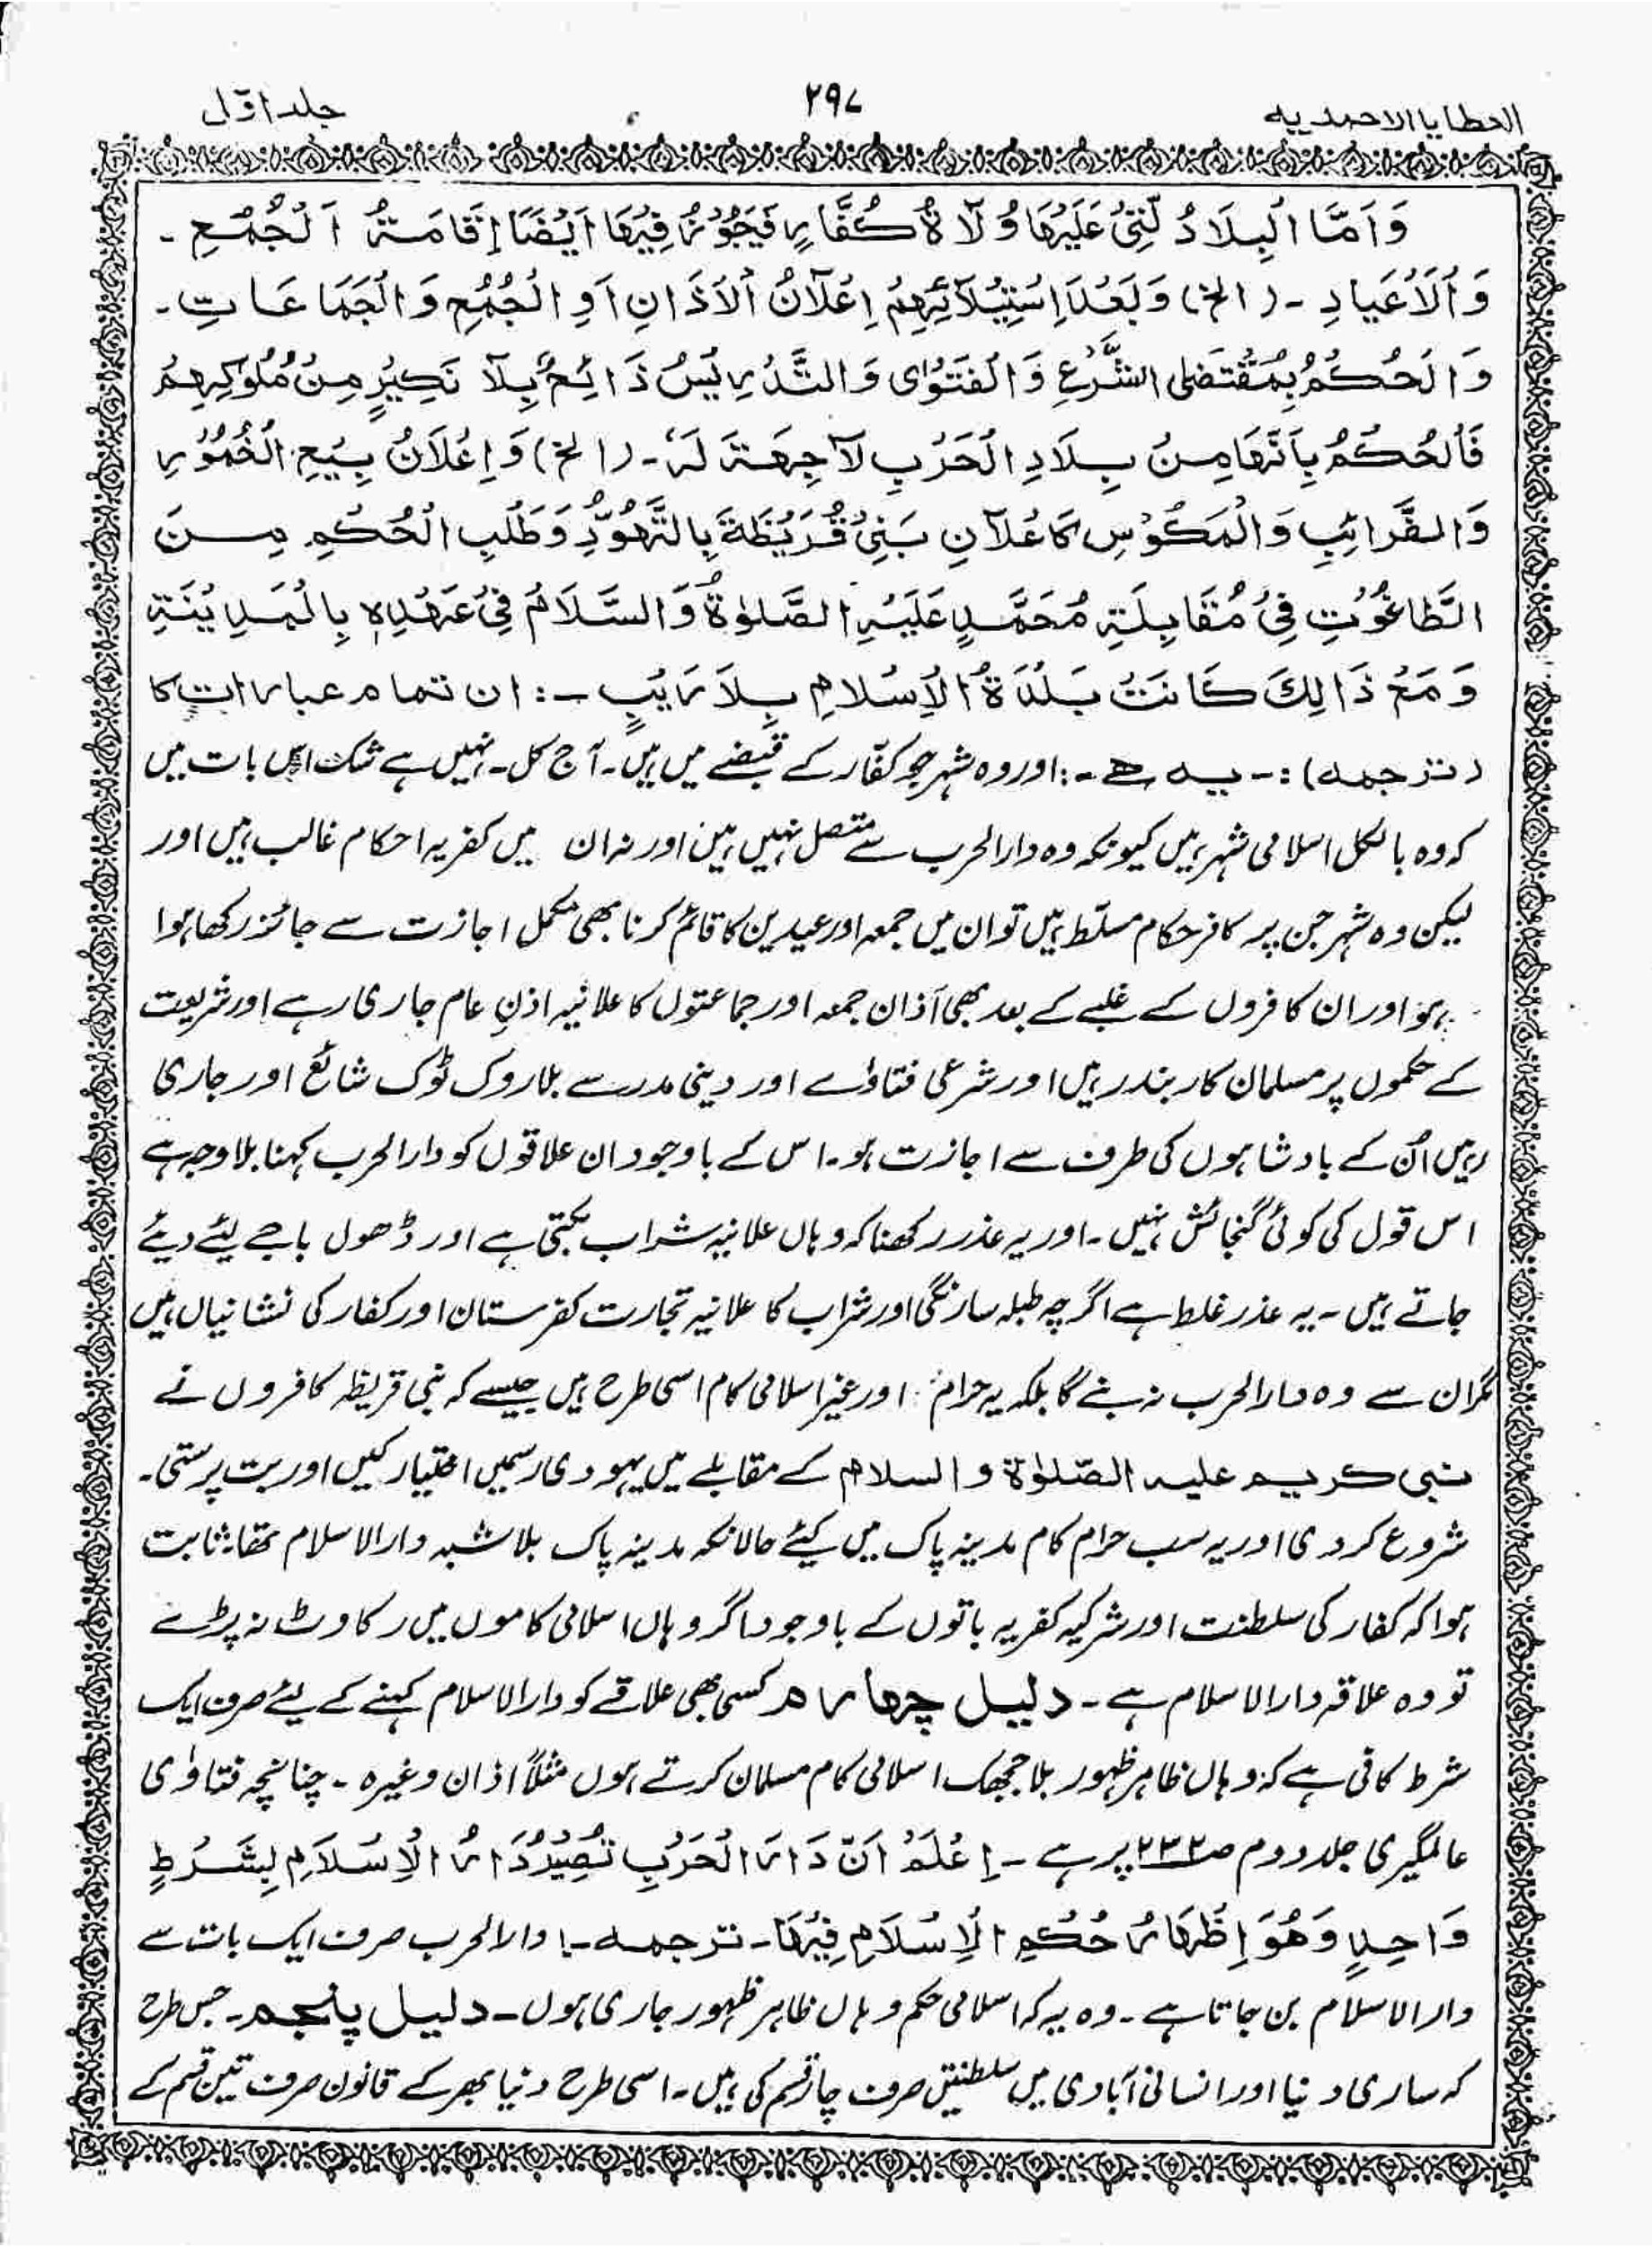 العطایا الاحمدیہ ۲۹۷ جلد اوّل
وَاَمَّا الْبِلَادُ لَّتِیْ عَلَیْهَا وُلَآةُ كُفَّارٍ فَیَجُوْزُ فِیْهَا اَیْضًا اِقَامَۃُ اَلْجُمَعِ ۔
وَالْاَعْیادِ ۔ (الخ) وَبَعْدَ اِسْتِیْلَآئِهِمْ اِعْلَآنُ الْاَذَانِ اَوِ الْجُمُعِ وَالْجَمَاعَاتِ ۔
وَالْحُكْمُ بِمُقْتَضَی الشَّرْعِ وَالْفَتَوٰی وَالتَّدْرِیْسُ ذَائِعٌ بِلَآ نَكِیْرٍ مِنْ مُلُوْكِهِمْ
فَالْحُكْمُ بِاَنَّهَا مِنْ بِلَادِ الْحَرْبِ لَآ جِهَۃَ لَہٗ ۔ (الخ) وَاِعْلَانُ بِیْعِ الْخُمُوْرِ
وَالضَّرَائِبِ وَالْمَكُوْسِ كَاعْلَآنِ بَنِیْ قُرَیْظَۃَ بِالتَّهَوُّدِ وَطَلْبِ الْحُكْمِ مِنَ
الطَّاغُوْتِ فِیْ مُقَابِلَۃِ مُحَمَّدٍ عَلَیْہِ الصَّلٰوۃُ وَالسَّلَامُ فِیْ عَهْدِہٖ بِالْمَدِیْنَۃِ
وَمَعْ ذَالِكَ كَانَتْ بَلْدَۃُ الْاِسْلَامِ بِلَا رَیْبٍ ۔: ان تمام عبارات کا
(ترجمہ) :۔ یہ ھے ۔: اور وہ شہر جو کفّار کے قبضے میں ہیں ۔ آج کل ۔ نہیں ہے شک اس بات میں
کہ وہ بالکل اسلامی شہر ہیں کیونکہ وہ دارالحرب سے متصل نہیں ہیں اور نہ ان میں کفریہ احکام غالب ہیں اور
لیکن وہ شہر جن پر کافر حکام مسلّط ہیں تو ان میں جمعہ اور عیدین کا قائم کرنا بھی مکمل اجازت سے جائز رکھا ہوا
ہو اور ان کافروں کے غلبے کے بعد بھی آذان جمعہ اور جماعتوں کا علانیہ اذنِ عام جاری رہے اور شریعت
کے حکموں پر مسلمان کاربند رہیں اور شرعی فتاوٰے اور دینی مدرسے بلا روک ٹوک شائع اور جاری
رہیں اُن کے بادشاہوں کی طرف سے اجازت ہو ۔ اس کے باوجود ان علاقوں کو دارالحرب کہنا بلاوجہ ہے
اس قول کی کوئی گنجائش نہیں ۔ اور یہ عذر رکھنا کہ وہاں علانیہ شراب بکتی ہے اور ڈھول باجے لیئے دیئے
جاتے ہیں ۔ یہ عذر غلط ہے اگرچہ طبلہ سارنگی اور شراب کا علانیہ تجارت کفرستان اور کفار کی نشانیاں ہیں
مگر ان سے وہ دارالحرب نہ بنے گا بلکہ یہ حرام اور غیر اسلامی کام اسی طرح ہیں جیسے کہ بنی قریظہ کافروں نے
نبی کریم علیہ الصّلوٰۃ والسلام کے مقابلے میں یہودی رسمیں اختیار کیں اور بت پرستی ۔
شروع کر دی اور یہ سب حرام کام مدینہ پاک میں کیئے حالانکہ مدینہ پاک بلاشبہ دارالاسلام تھا ۔ ثابت
ہوا کہ کفار کی سلطنت اور شرکیہ کفریہ باتوں کے باوجود اگر وہاں اسلامی کاموں میں رکاوٹ نہ پڑے
تو وہ علاقہ دارالاسلام ہے ۔ دلیل چھارم کسی بھی علاقے کو دارالاسلام کہنے کے لیئے صرف ایک
شرط کافی ہے کہ وہاں ظاہر ظہور بلا جھجک اسلامی کام مسلمان کرتے ہوں مثلاً اذان وغیرہ ۔ چنانچہ فتاوٰی
عالمگیری جلد دوم صـ۲۳۲ پر ہے ۔ اِعْلَمْ اَنّ دَارَ الْحَرْبِ تَصِیْرُ دَارُ الْاِسْلَامِ بِشَرْطٍ
وَاحِدٍ وَهُوَ اِظْهَارُ حُكْمِ الْاِسْلَامِ فِیْهَا ۔ ترجمہ ۔ دارالحرب صرف ایک بات سے
دارالاسلام بن جاتا ہے ۔ وہ یہ کہ اسلامی حکم وہاں ظاہر ظہور جاری ہوں ۔ دلیل پانجم ۔ جس طرح
کہ ساری دنیا اور انسانی آبادی میں سلطنتیں صرف چار قسم کی ہیں ۔ اسی طرح دنیا بھر کے قانون صرف تین قسم کے